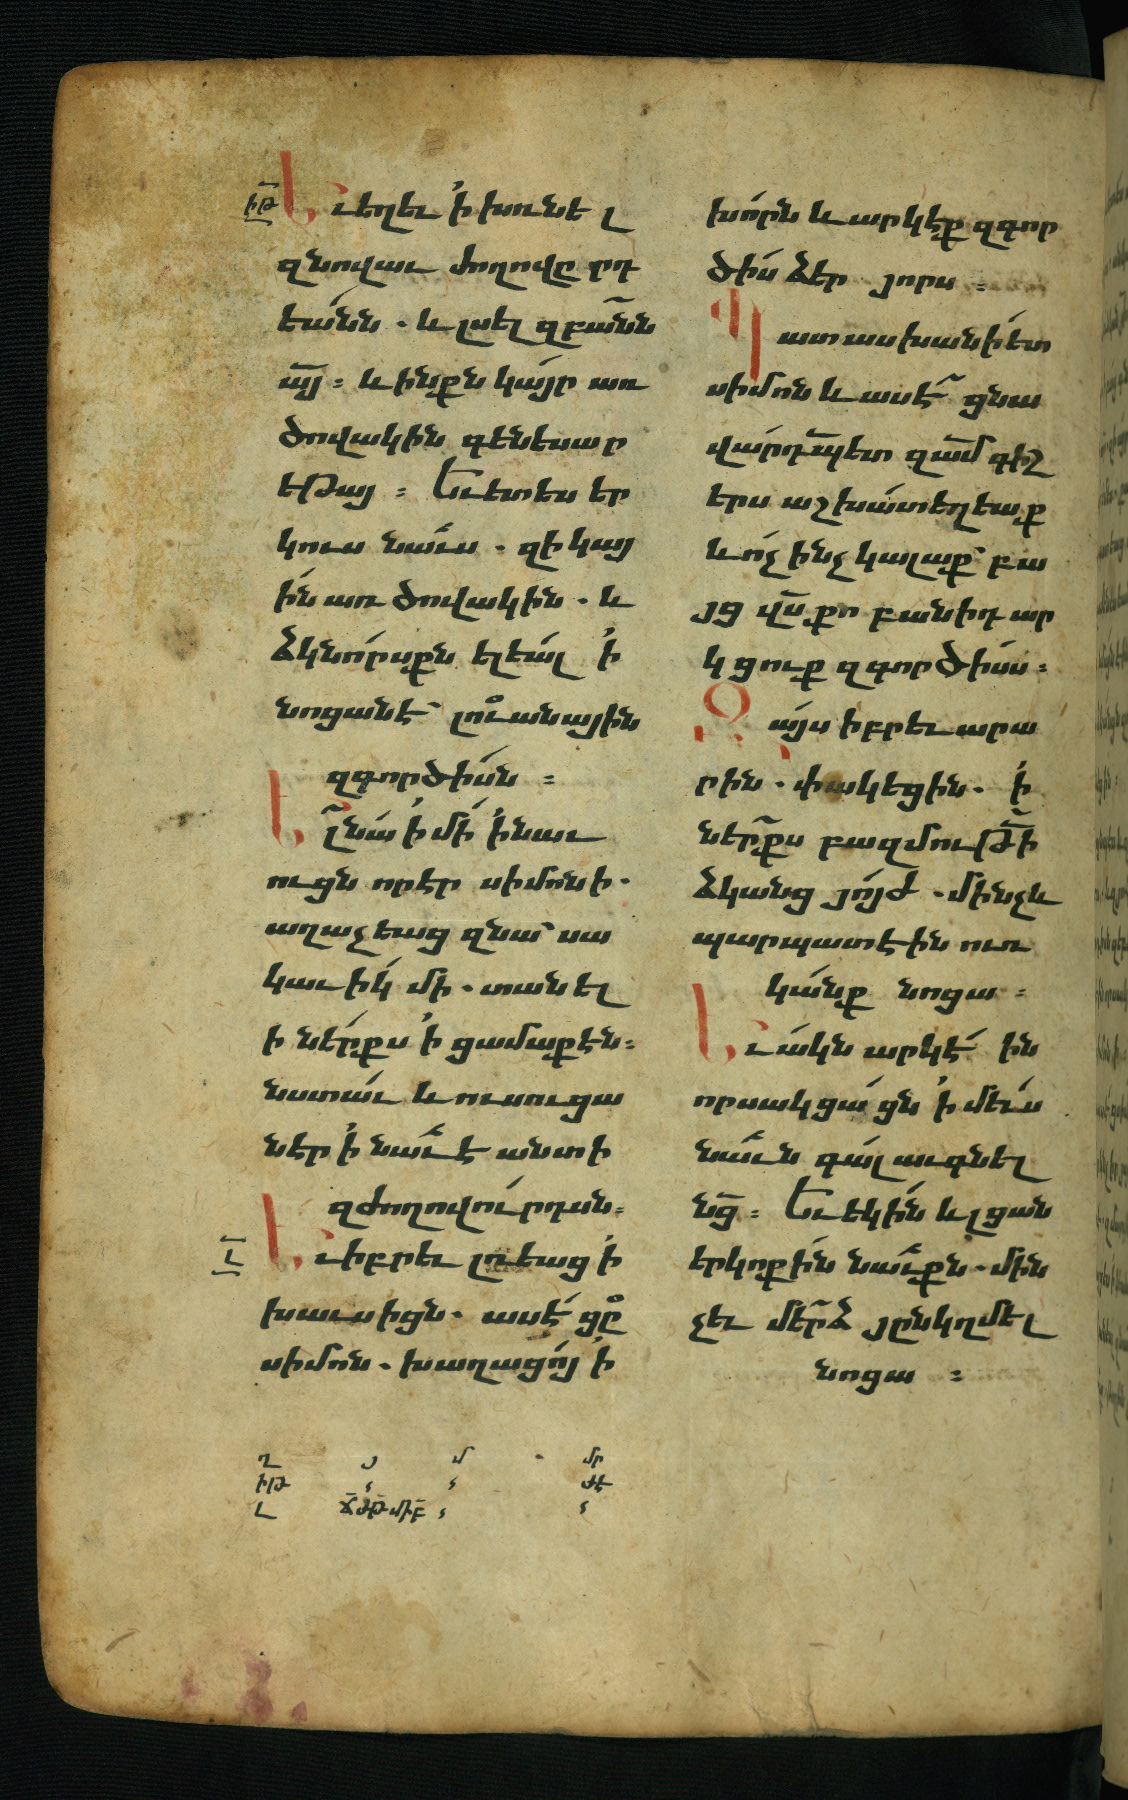 ի՟թ
Եւ եղեւ ՚ի խռնել
զնովաւ ժողովըրդ
եանն ․ և լսել զբանն
ա՟յ ։ և ինքն կայր առ
ծովակին գէնեսար
եթայ ։ Եւ ետես եր
կուս նաւս ․ զի կայ
ին առ ծովակին ․ և
ձկնորսքն ելեալ ՚ի
նոցանէ՝ լուանային
զգործիսն ։
Ել՟նա ՚ի մի ՚ի նաւ
ուցն որէր սիմոնի ․
աղաչեաց զնա՝ սա
կաւիկ մի ․ տանել
ի ներքս ՚ի ցամաքէն ։
նստաւ և ուսուցա
նէր ՚ի նաւէ անտի
զժողովուրդսն ։
Լ
Եւ իբրեւ լռեաց ՚ի
խաւսիցն ․ ասէ ցը
սիմոն ․ խաղացոյ ՚ի
խորն և արկէք զգոր
ծիս ձեր յորս ։
Պատասխանի ետ
սիմոն և ասէ՟ ցնա
վարդա՟պետ զա՟մ գիշ
երս աշխատեղեաք
և ոչ ինչ կալաք՝ բա
յց վ՟ս քո բանիդ ար
կցուք զգործիսս ։
Զայս իբրեւ արա
րին ․ փակեցին ․ ՚ի
ներքս բազմութի՟
ձկանց յոյժ ․ մինչև
պարպատէին ուռ
կանք նոցա ։
Եւ ակն արկէին
որսակցացն ՚ի մեւս
նաւն գալ աւգնել
նց՟ ։ Եւ եկին և լցան
երկոքին նաւքն ․ մին
չեւ մերձ յընկղմել
նոցա ։
ղ յ մ մր
ի՟թ ժէ
Լ